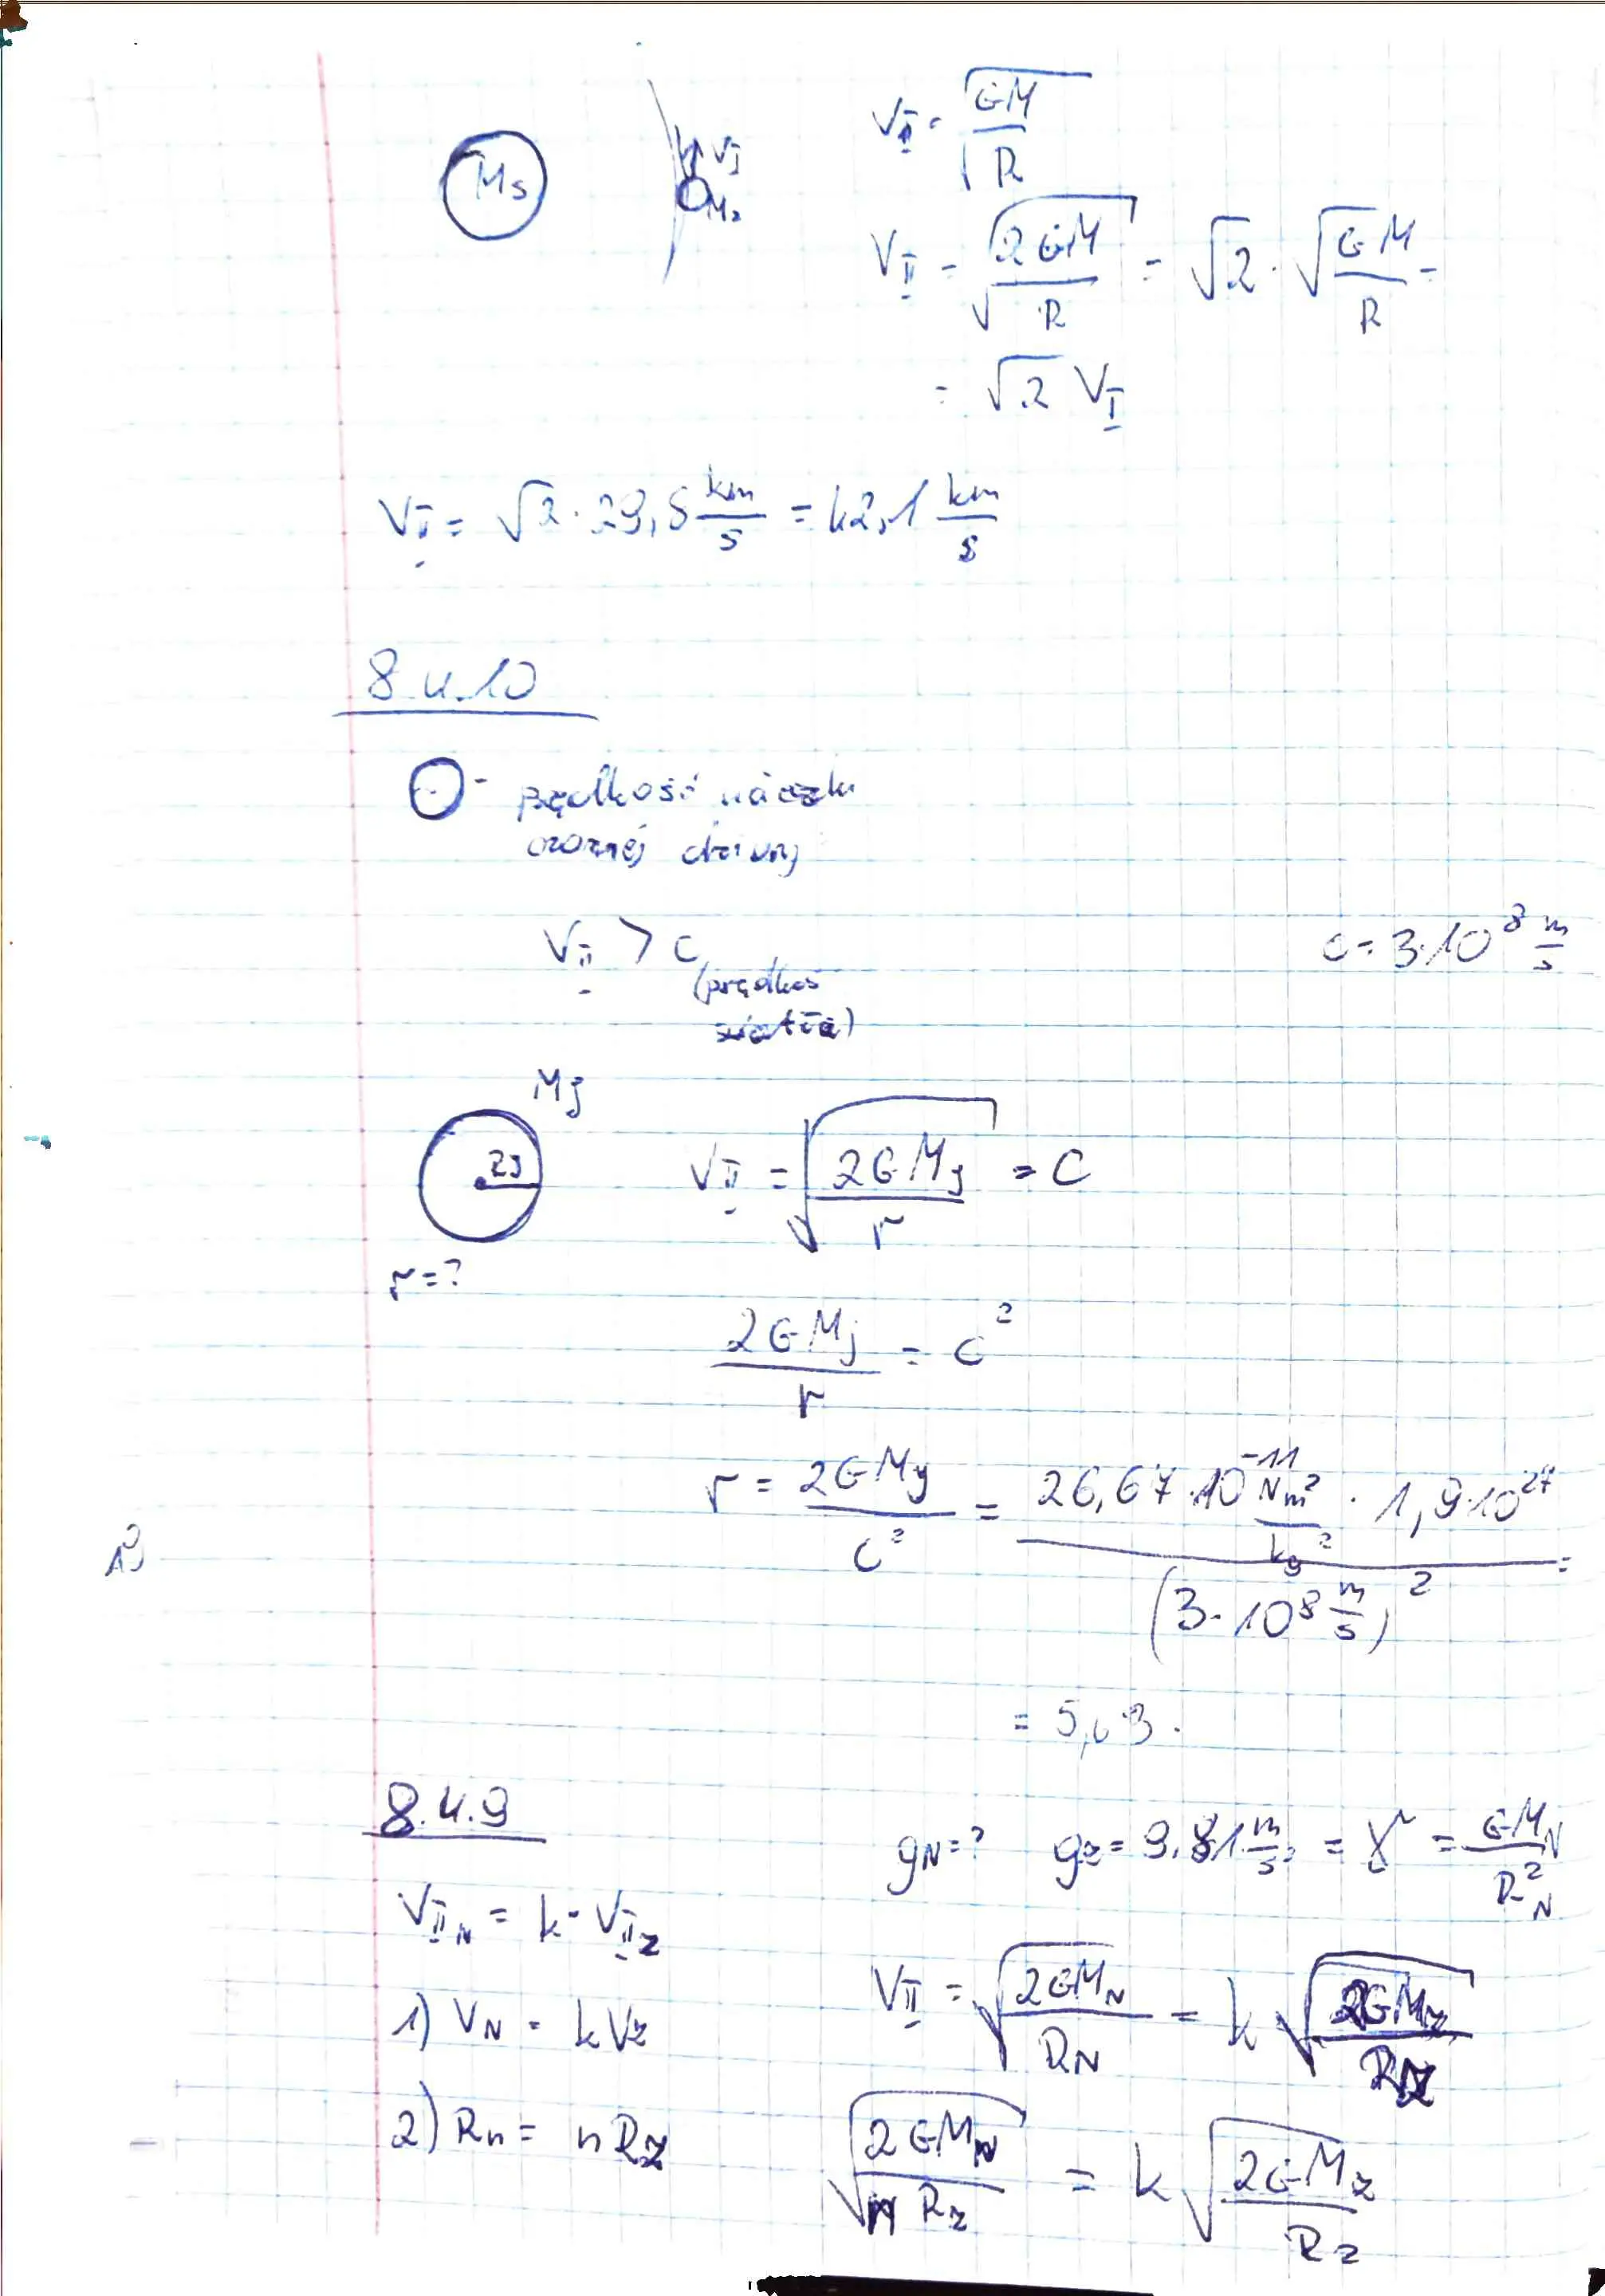 Ms
V_I
Mz
V_I = √(GM/R)
V_II = √(2GM/R) = √2 · √(GM/R) =
= √2 V_I
V_II = √2 · 29,8 km/s = 42,1 km/s
8.4.10
- prędkość
czarnej dziury
V_II > c
(prędkość
światła)
c = 3·10^8 m/s
Mj
Rj
r = ?
V_II = √(2GMj/r) = c
2GMj/r = c^2
r = 2GMj/c^2 = 26,67·10^-11 Nm^2/kg^2 · 1,9·10^27 / (3·10^8 m/s)^2 =
8.4.9
gN = ? gz = 9,81 m/s² = γ = GM_N/R_N^2
V_IIN = k · V_IIz
1) V_N = kVz
2) Rn = nRz
V_II = √(2GM_N/R_N) = k √(2GMz/Rz)
√(2GM_N/nRz) = k √(2GMz/Rz)